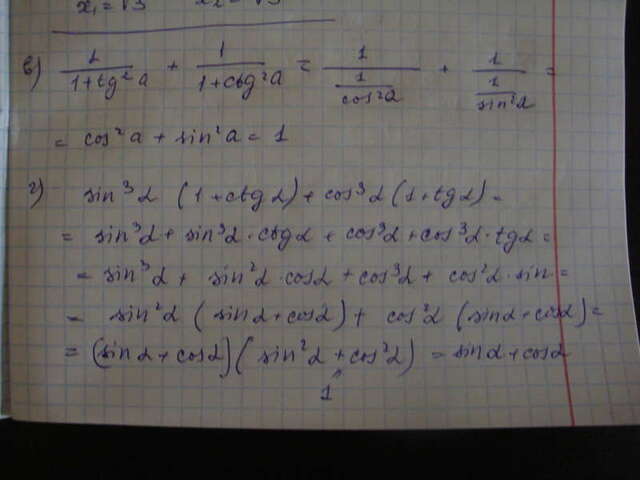 x₁ = √3 x₂ = √3
в) 1/(1+tg²a) + 1/(1+ctg²a) = 1/(1/cos²α) + 1/(1/sin²α) =
= cos²a + sin²a = 1
г) sin³α (1+ctgα) + cos³α (1+tgα) =
= sin³α + sin³α · ctgα + cos³α + cos³α · tgα =
= sin³α + sin²α · cosα + cos³α + cos²α · sin =
= sin²α (sinα + cosα) + cos²α (sinα + cosα) =
= (sinα + cosα) (sin²α + cos²α) = sinα + cosα
1